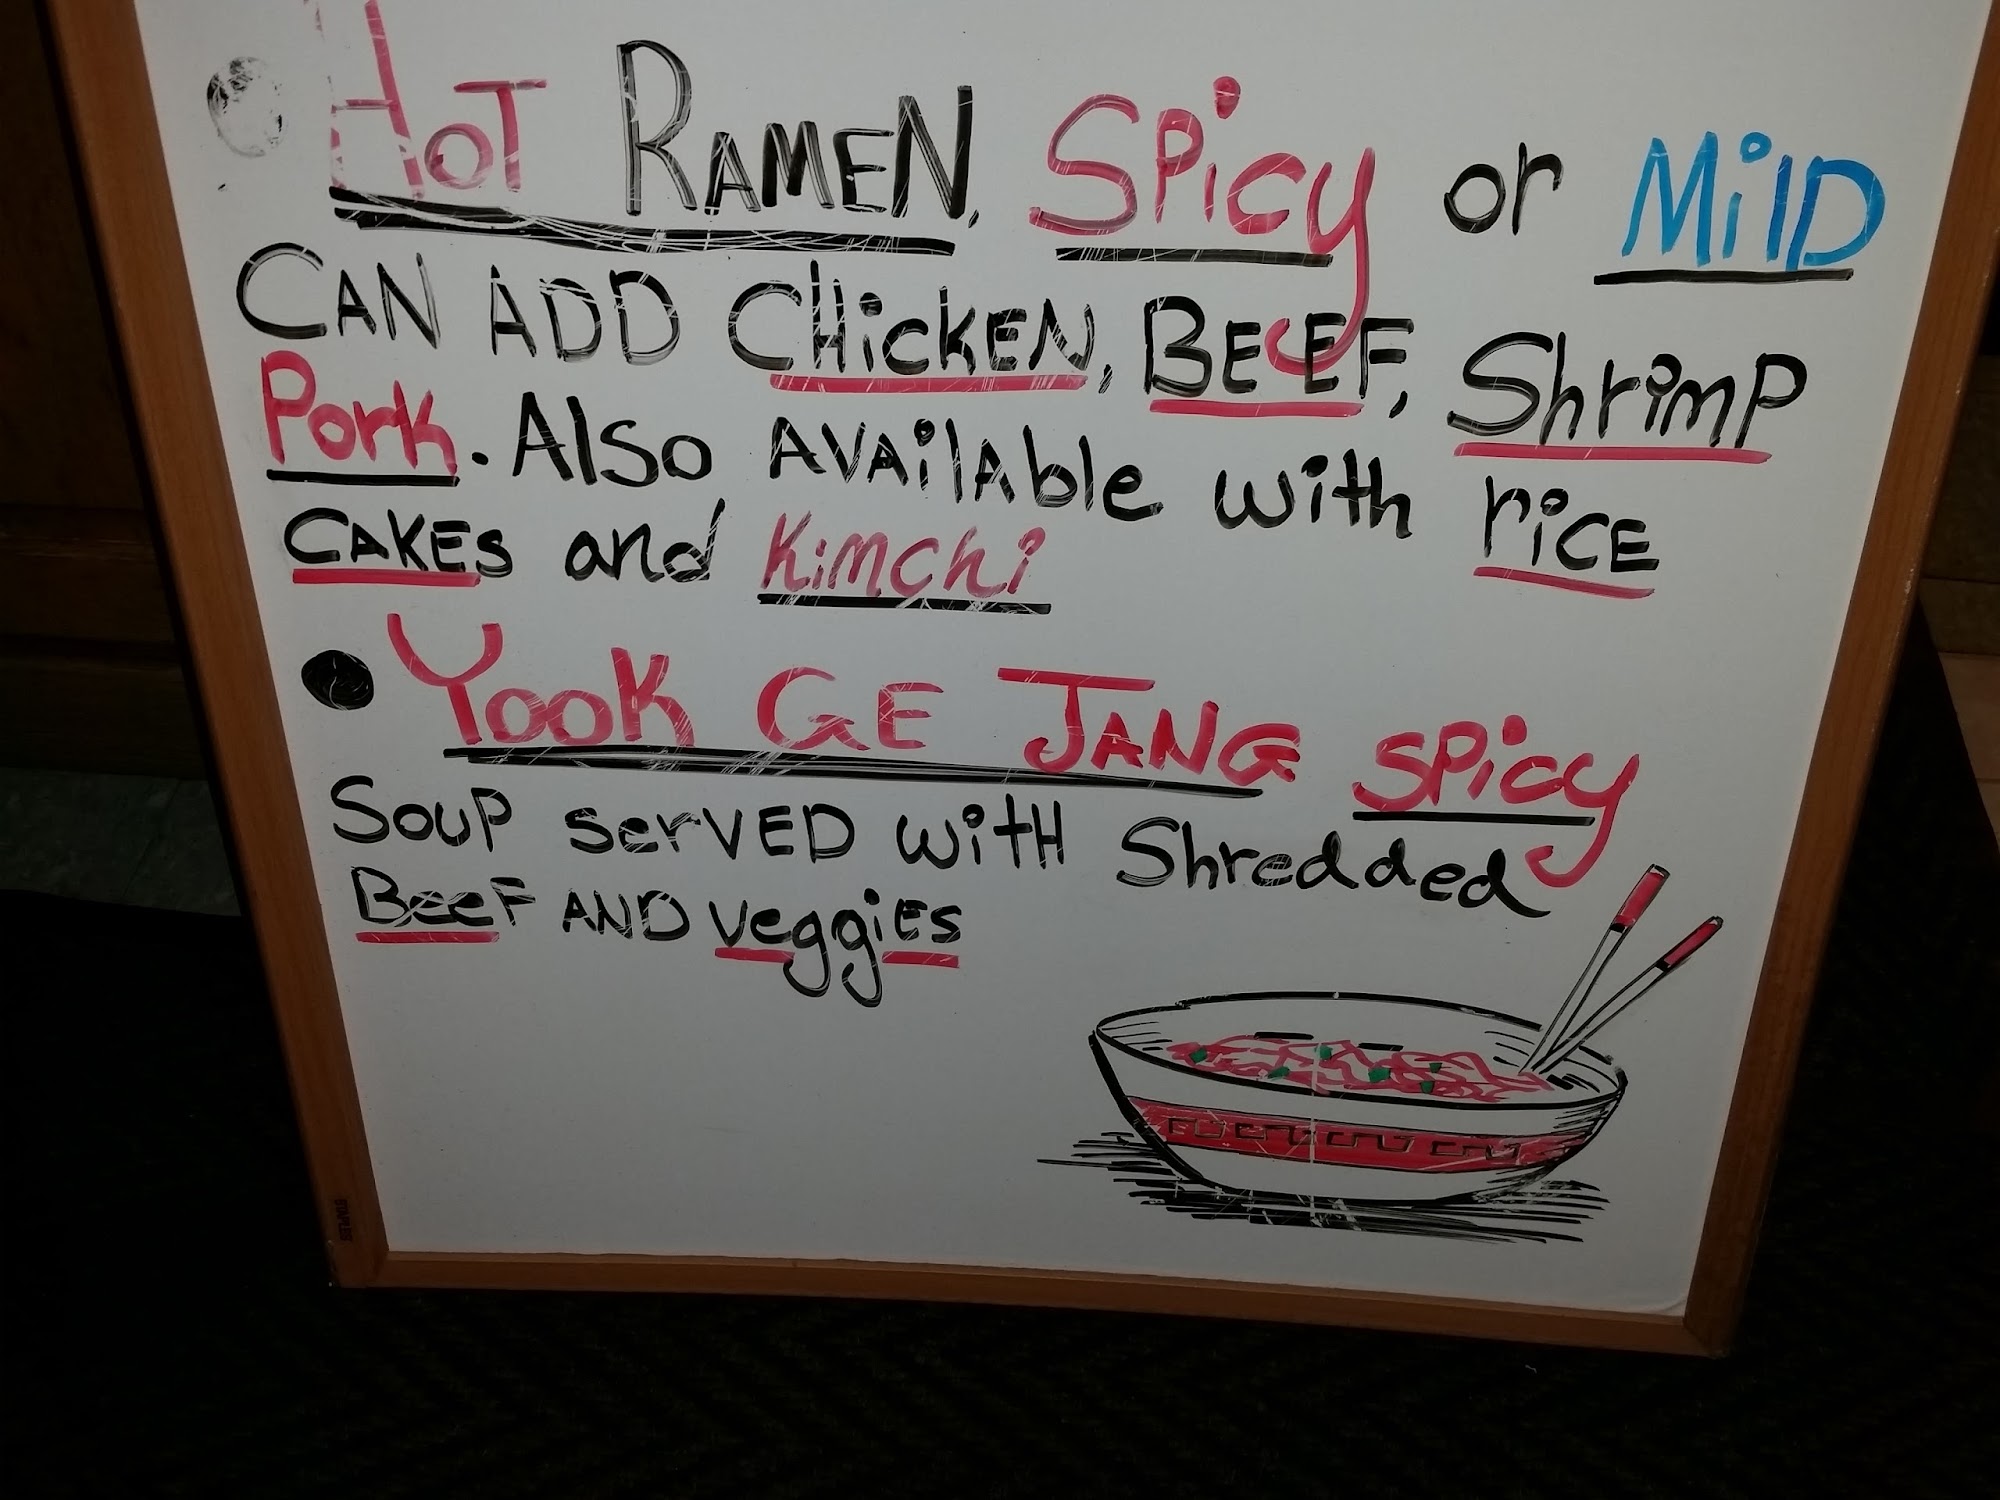 HOT RAMEN, SPicy or MilD
CAN ADD CHicKEN, BEEF, ShrimP
Pork. Also AVAilAble with riCE
CAKEs and Kimchi
YooK GE JANG SPicy
Soup serVED WitH Shredded
BeeF AND veggiEs
STAPLES